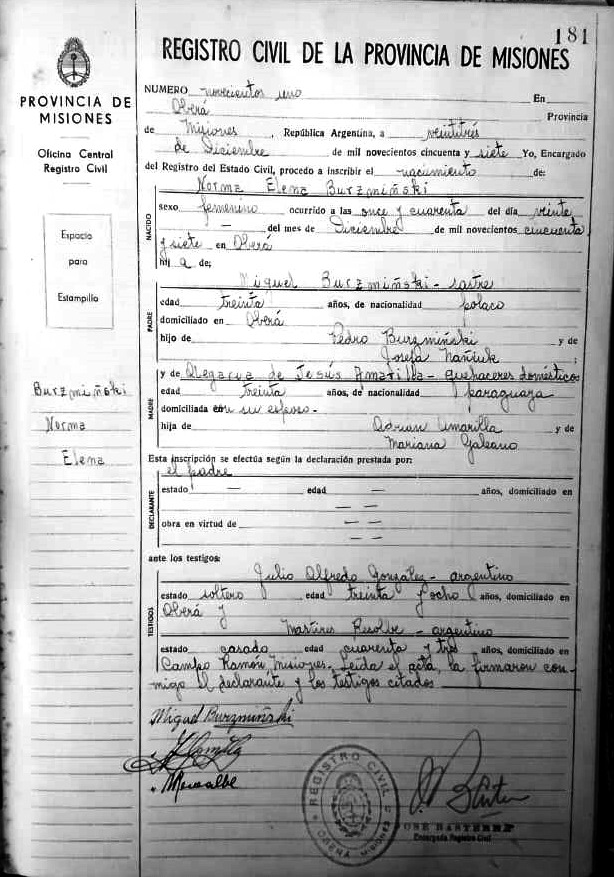 181
REGISTRO CIVIL DE LA PROVINCIA DE MISIONES
PROVINCIA DE
MISIONES
Oficina Central
Registro Civil
Espacio
para
Estampillo
Burzmiński
Norma
Elena
NUMERO novecientos uno En
Oberá Provincia
de Misiones, República Argentina, a veintitrés
de Diciembre de mil novecientos cincuenta y siete Yo, Encargado
del Registro del Estado Civil, procedo a inscribir el nacimiento de:
NACIDO
Norma Elena Burzmiński
sexo femenino ocurrido a las once y cuarenta del día veinte
— del mes de Diciembre de mil novecientos cincuenta
y siete en Oberá
hij a de;
PADRE
Miguel Burzmiński - sastre
edad treinta años, de nacionalidad polaco
domiciliado en Oberá
hijo de Pedro Burzmiński y de
Josefa ;
MADRE
y de de Jesús Amarilla - quehaceres domésticos
edad treinta años, de nacionalidad paraguaya
domiciliada con su esposo.-
hija de Adrian Amarilla y de
Mariana Galeano
Esta inscripción se efectúa según la declaración prestada por:
el padre
DECLARANTE
estado — edad — años, domiciliado en
— —
obra en virtud de — —
— —
ante los testigos:
TESTIGOS
Julio Alfredo González - argentino
estado soltero edad treinta y ocho años, domiciliado en
Oberá y
Martires - argentino
estado casado edad cuarenta y tres años, domiciliado en
Campo Ramón Misiones.- Leída el acta, la firmaron con-
migo el declarante y los testigos citados
Miguel Burzmiński
REGISTRO CIVIL
OBERÁ MISIONES
Encargado Registro Civil